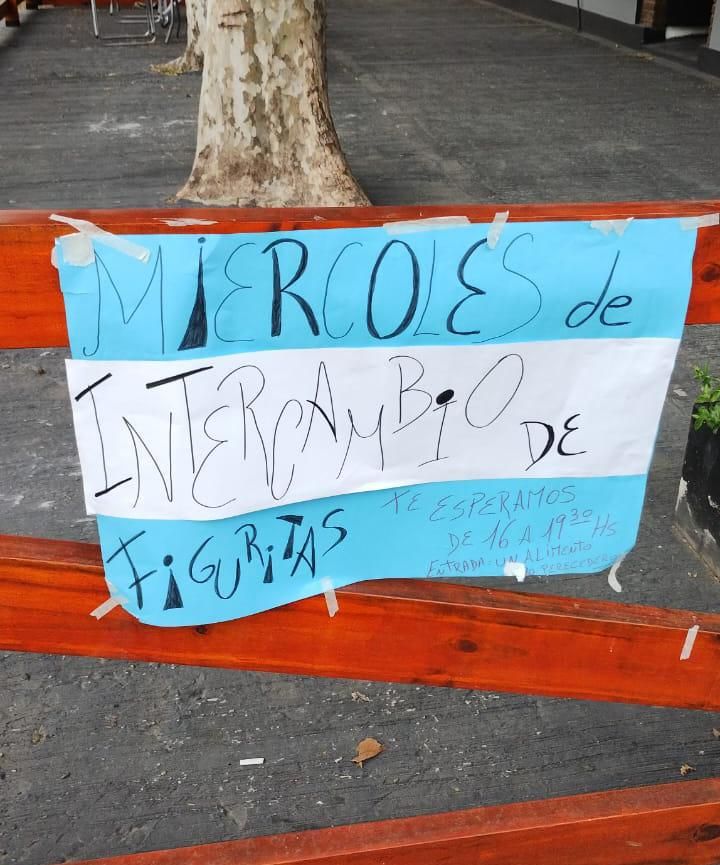 MIERCOLES de
INTERCAMBIO DE
FIGURITAS
TE ESPERAMOS
DE 16 A 19³⁰ HS
ENTRADA: UN ALIMENTO
PERECEDERO